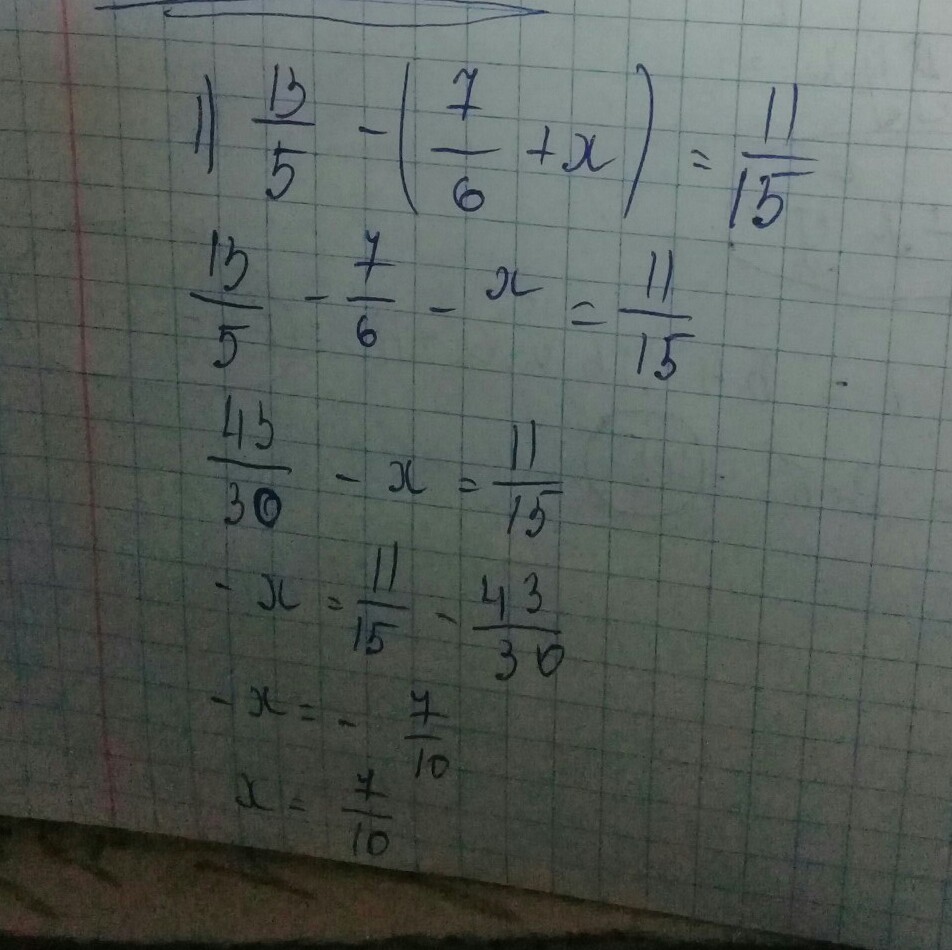 1) 13/5 - (7/6 + x) = 11/15
13/5 - 7/6 - x = 11/15
43/30 - x = 11/15
- x = 11/15 - 43/30
- x = - 7/10
x = 7/10